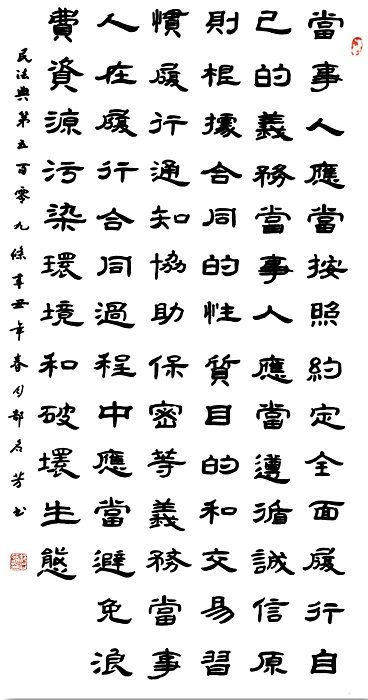 當事人應當按照約定全面履行自
己的義務當事人應當遵循誠信原
則根據合同的性質目的和交易習
慣履行通知協助保密等義務當事
人在履行合同過程中應當避免浪
費資源污染環境和破壞生態
民法典第五百零九條辛丑年春月芳书